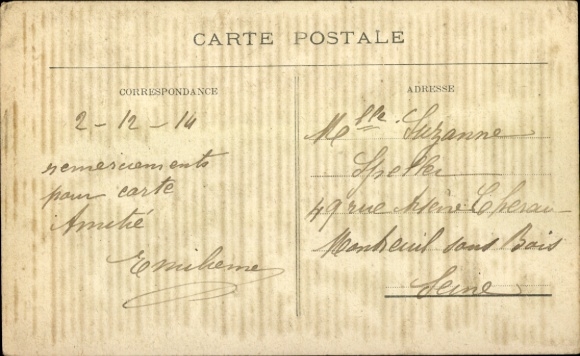 CARTE POSTALE
CORRESPONDANCE
2-12-14
remerciements
pour carte
Amitié
ADRESSE
Mlle. Suzanne
49 rue Arsène Chereau
Montreuil sous Bois
Seine